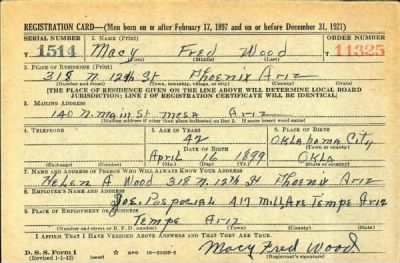 REGISTRATION CARD—(Men born on or after February 17, 1897 and on or before December 31, 1921)
SERIAL NUMBER 1. NAME (Print) ORDER NUMBER
T 1514 Macy Fred Wood T 11325
(First) (Middle) (Last)
2. PLACE OF RESIDENCE (Print)
318 N. 12th St Phoenix Ariz
(Number and street) (Town, township, village, or city) (County) (State)
[THE PLACE OF RESIDENCE GIVEN ON THE LINE ABOVE WILL DETERMINE LOCAL BOARD
JURISDICTION; LINE 2 OF REGISTRATION CERTIFICATE WILL BE IDENTICAL]
3. MAILING ADDRESS
140 N. Main St. Mesa Ariz
[Mailing address if other than place indicated on line 2. If same insert word same]
4. TELEPHONE 5. AGE IN YEARS 6. PLACE OF BIRTH
42 Oklahoma City
DATE OF BIRTH (Town or county)
April 16 1899 Okla
(Exchange) (Number) (Mo.) (Day) (Yr.) (State or country)
7. NAME AND ADDRESS OF PERSON WHO WILL ALWAYS KNOW YOUR ADDRESS
Helen A Wood 318 N. 12th St Phoenix Ariz
8. EMPLOYER'S NAME AND ADDRESS
417 Mill Ave Tempe Ariz
9. PLACE OF EMPLOYMENT OR BUSINESS
Tempe Ariz
(Number and street or R. F. D. number) (Town) (County) (State)
I AFFIRM THAT I HAVE VERIFIED ABOVE ANSWERS AND THAT THEY ARE TRUE.
D. S. S. Form 1
(Revised 1-1-42) (over) Macy Fred Wood
(Registrant's signature)